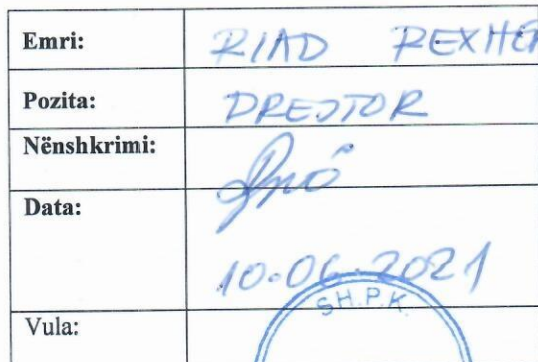 Emri: RIAD REXHEP
Pozita: DREJTOR
Nënshkrimi:
Data: 10.06.2021
Vula:
SH.P.K.